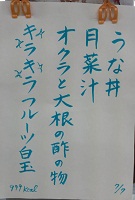 うな丼
月菜汁
オクラと大根の酢の物
キラキラフルーツ白玉
7/7